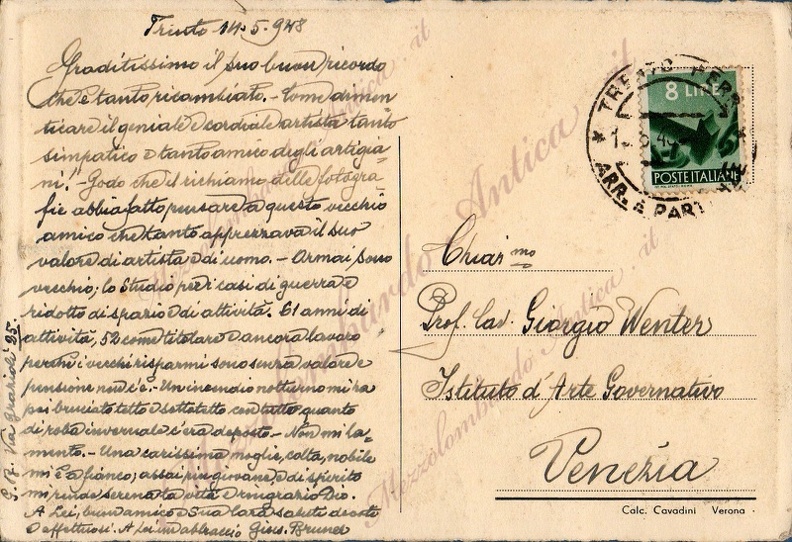 Trento 14.5.948
Graditissimo il suo buon ricordo
che è tanto ricambiato. - Come dimen=
ticare il geniale e cordiale artista tanto
simpatico e tanto amico degli artigia=
ni! - Godo che il richiamo delle fotogra=
fie abbia fatto pensare a questo vecchio
amico che tanto apprezzava il suo
valore di artista e di uomo. - Ormai sono
vecchio; lo Studio per i casi di guerra è
ridotto di spazio e di attività. 61 anni di
attività, 52 come titolare e ancora lavoro
perchè i vecchi risparmi sono senza valore e
pensione non c'è. - Un incendio notturno mi ha
poi bruciato tetto e sottotetto con tutto quanto
di roba invernale c'era deposto. - Non mi la=
mento. - Una carissima moglie, colta, nobile
mi è a fianco; assai più giovane, e di spirito
mi rende serena la vita e ringrazio Dio.
A Lei, buon amico e Sua Cara saluti devoti
e affettuosi. A Lei un abbraccio Gius. Bruner
G. B. Via Grazioli 25.
8 LIRE
POSTE ITALIANE
TRENTO FERR
ARR. E PART
Chiar mo
Prof. Cav. Giorgio Wenter
Istituto d'Arte Governativo
Venezia
Calc. Cavadini Verona
Mezzolombardo Antica . it
Mezzolombardo Antica . it